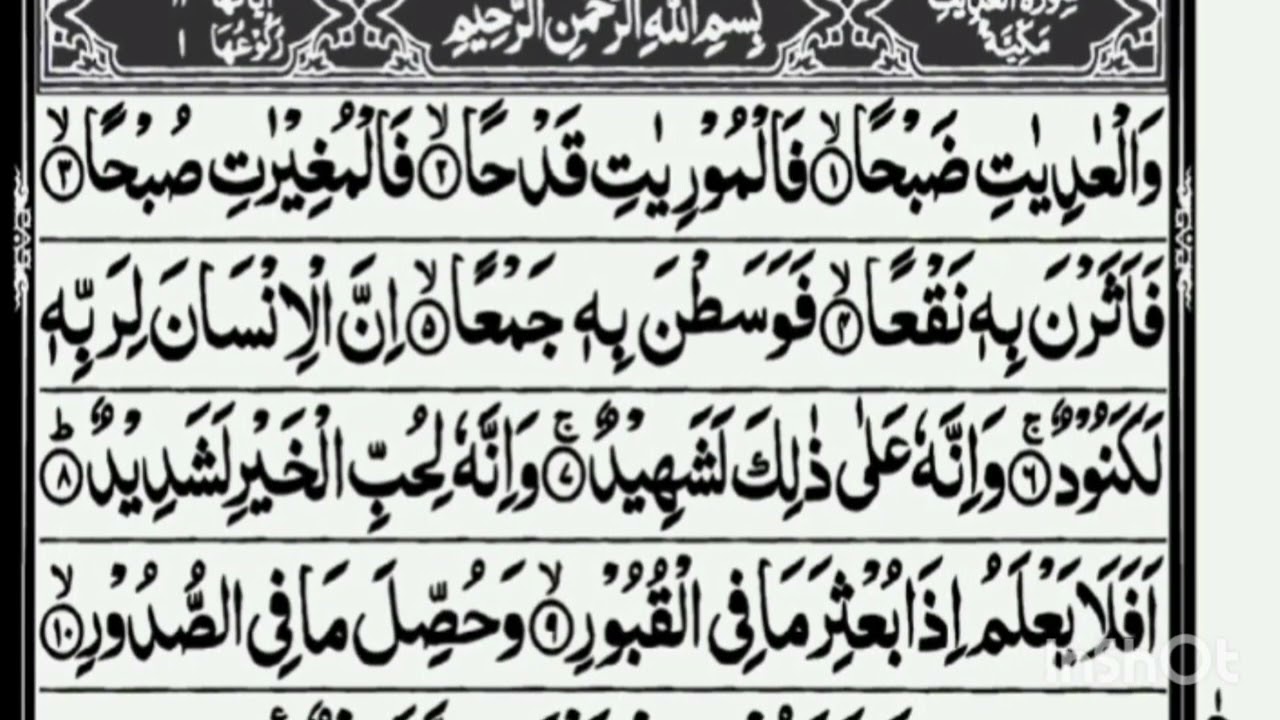 سورة العديت مكية
بِسْمِ اللهِ الرَّحْمٰنِ الرَّحِيْمِ
اياتها ١١
رُكُوْعُهَا ١
وَالْعٰدِيٰتِ ضَبْحًا ۙ﴿۱﴾ فَالْمُوْرِيٰتِ قَدْحًا ۙ﴿۲﴾ فَالْمُغِيْرٰتِ صُبْحًا ۙ﴿۳﴾
فَاَثَرْنَ بِهٖ نَقْعًا ۙ﴿۴﴾ فَوَسَطْنَ بِهٖ جَمْعًا ۙ﴿۵﴾ اِنَّ الْاِنْسَانَ لِرَبِّهٖ
لَكَنُوْدٌ ۚ﴿۶﴾ وَاِنَّهٗ عَلٰى ذٰلِكَ لَشَهِيْدٌ ۚ﴿۷﴾ وَاِنَّهٗ لِحُبِّ الْخَيْرِ لَشَدِيْدٌ ؕ﴿۸﴾
اَفَلَا يَعْلَمُ اِذَا بُعْثِرَ مَا فِى الْقُبُوْرِ ۙ﴿۹﴾ وَحُصِّلَ مَا فِى الصُّدُوْرِ ۙ﴿۱۰﴾
InShOt